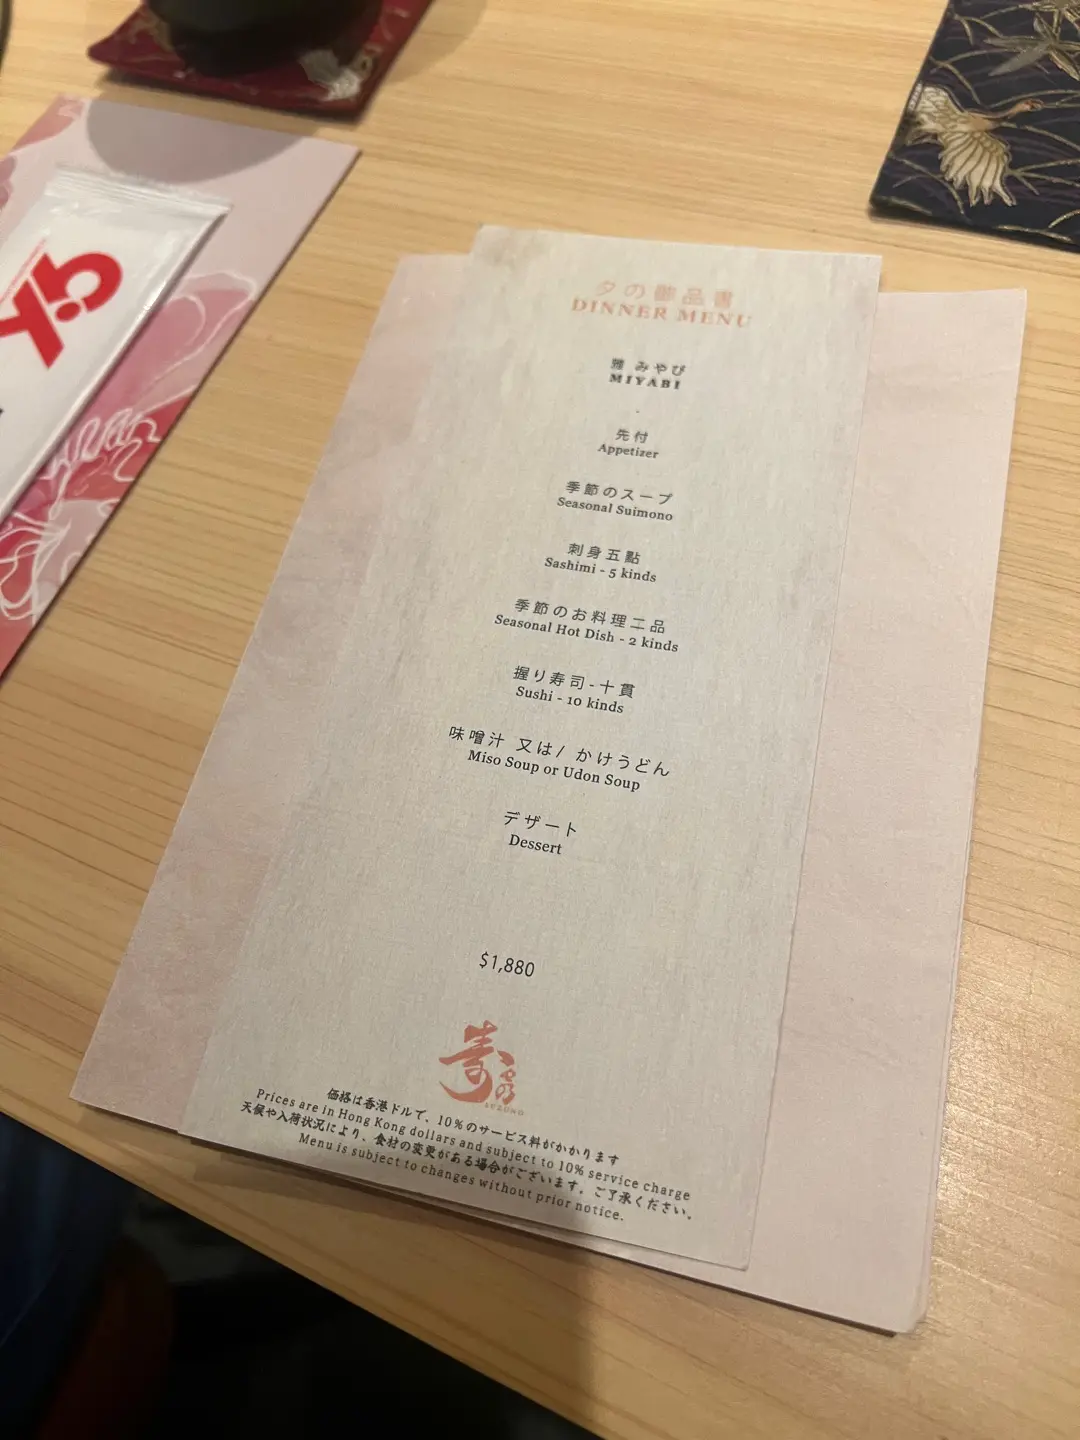 夕の御品書
DINNER MENU
雅 みやび
MIYABI
先付
Appetizer
季節のスープ
Seasonal Suimono
刺身五點
Sashimi - 5 kinds
季節のお料理二品
Seasonal Hot Dish - 2 kinds
握り寿司-十貫
Sushi - 10 kinds
味噌汁 又は/ かけうどん
Miso Soup or Udon Soup
デザート
Dessert
$1,880
価格は香港ドルで、10%のサービス料がかかります
Prices are in Hong Kong dollars and subject to 10% service charge
天候や入荷状況により、食材の変更がある場合がございます。ご了承ください。
Menu is subject to changes without prior notice.